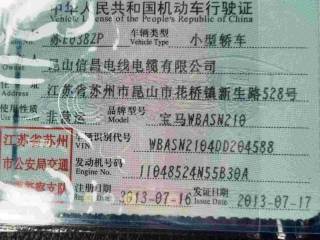 中华人民共和国机动车行驶证
License of the People's Republic of China
苏E038ZP 车辆类型 Vehicle Type 小型轿车
昆山信昌电线电缆有限公司
江苏省苏州市昆山市花桥镇新生路528号
非营运 品牌型号 Model 宝马WBASN210
江苏省苏州市公安局交通警察支队
车辆识别代号 VIN WBASN2104DD204588
发动机号码 11048524N55B30A
注册日期 2013-07-16 发证日期 Issue Date 2013-07-17